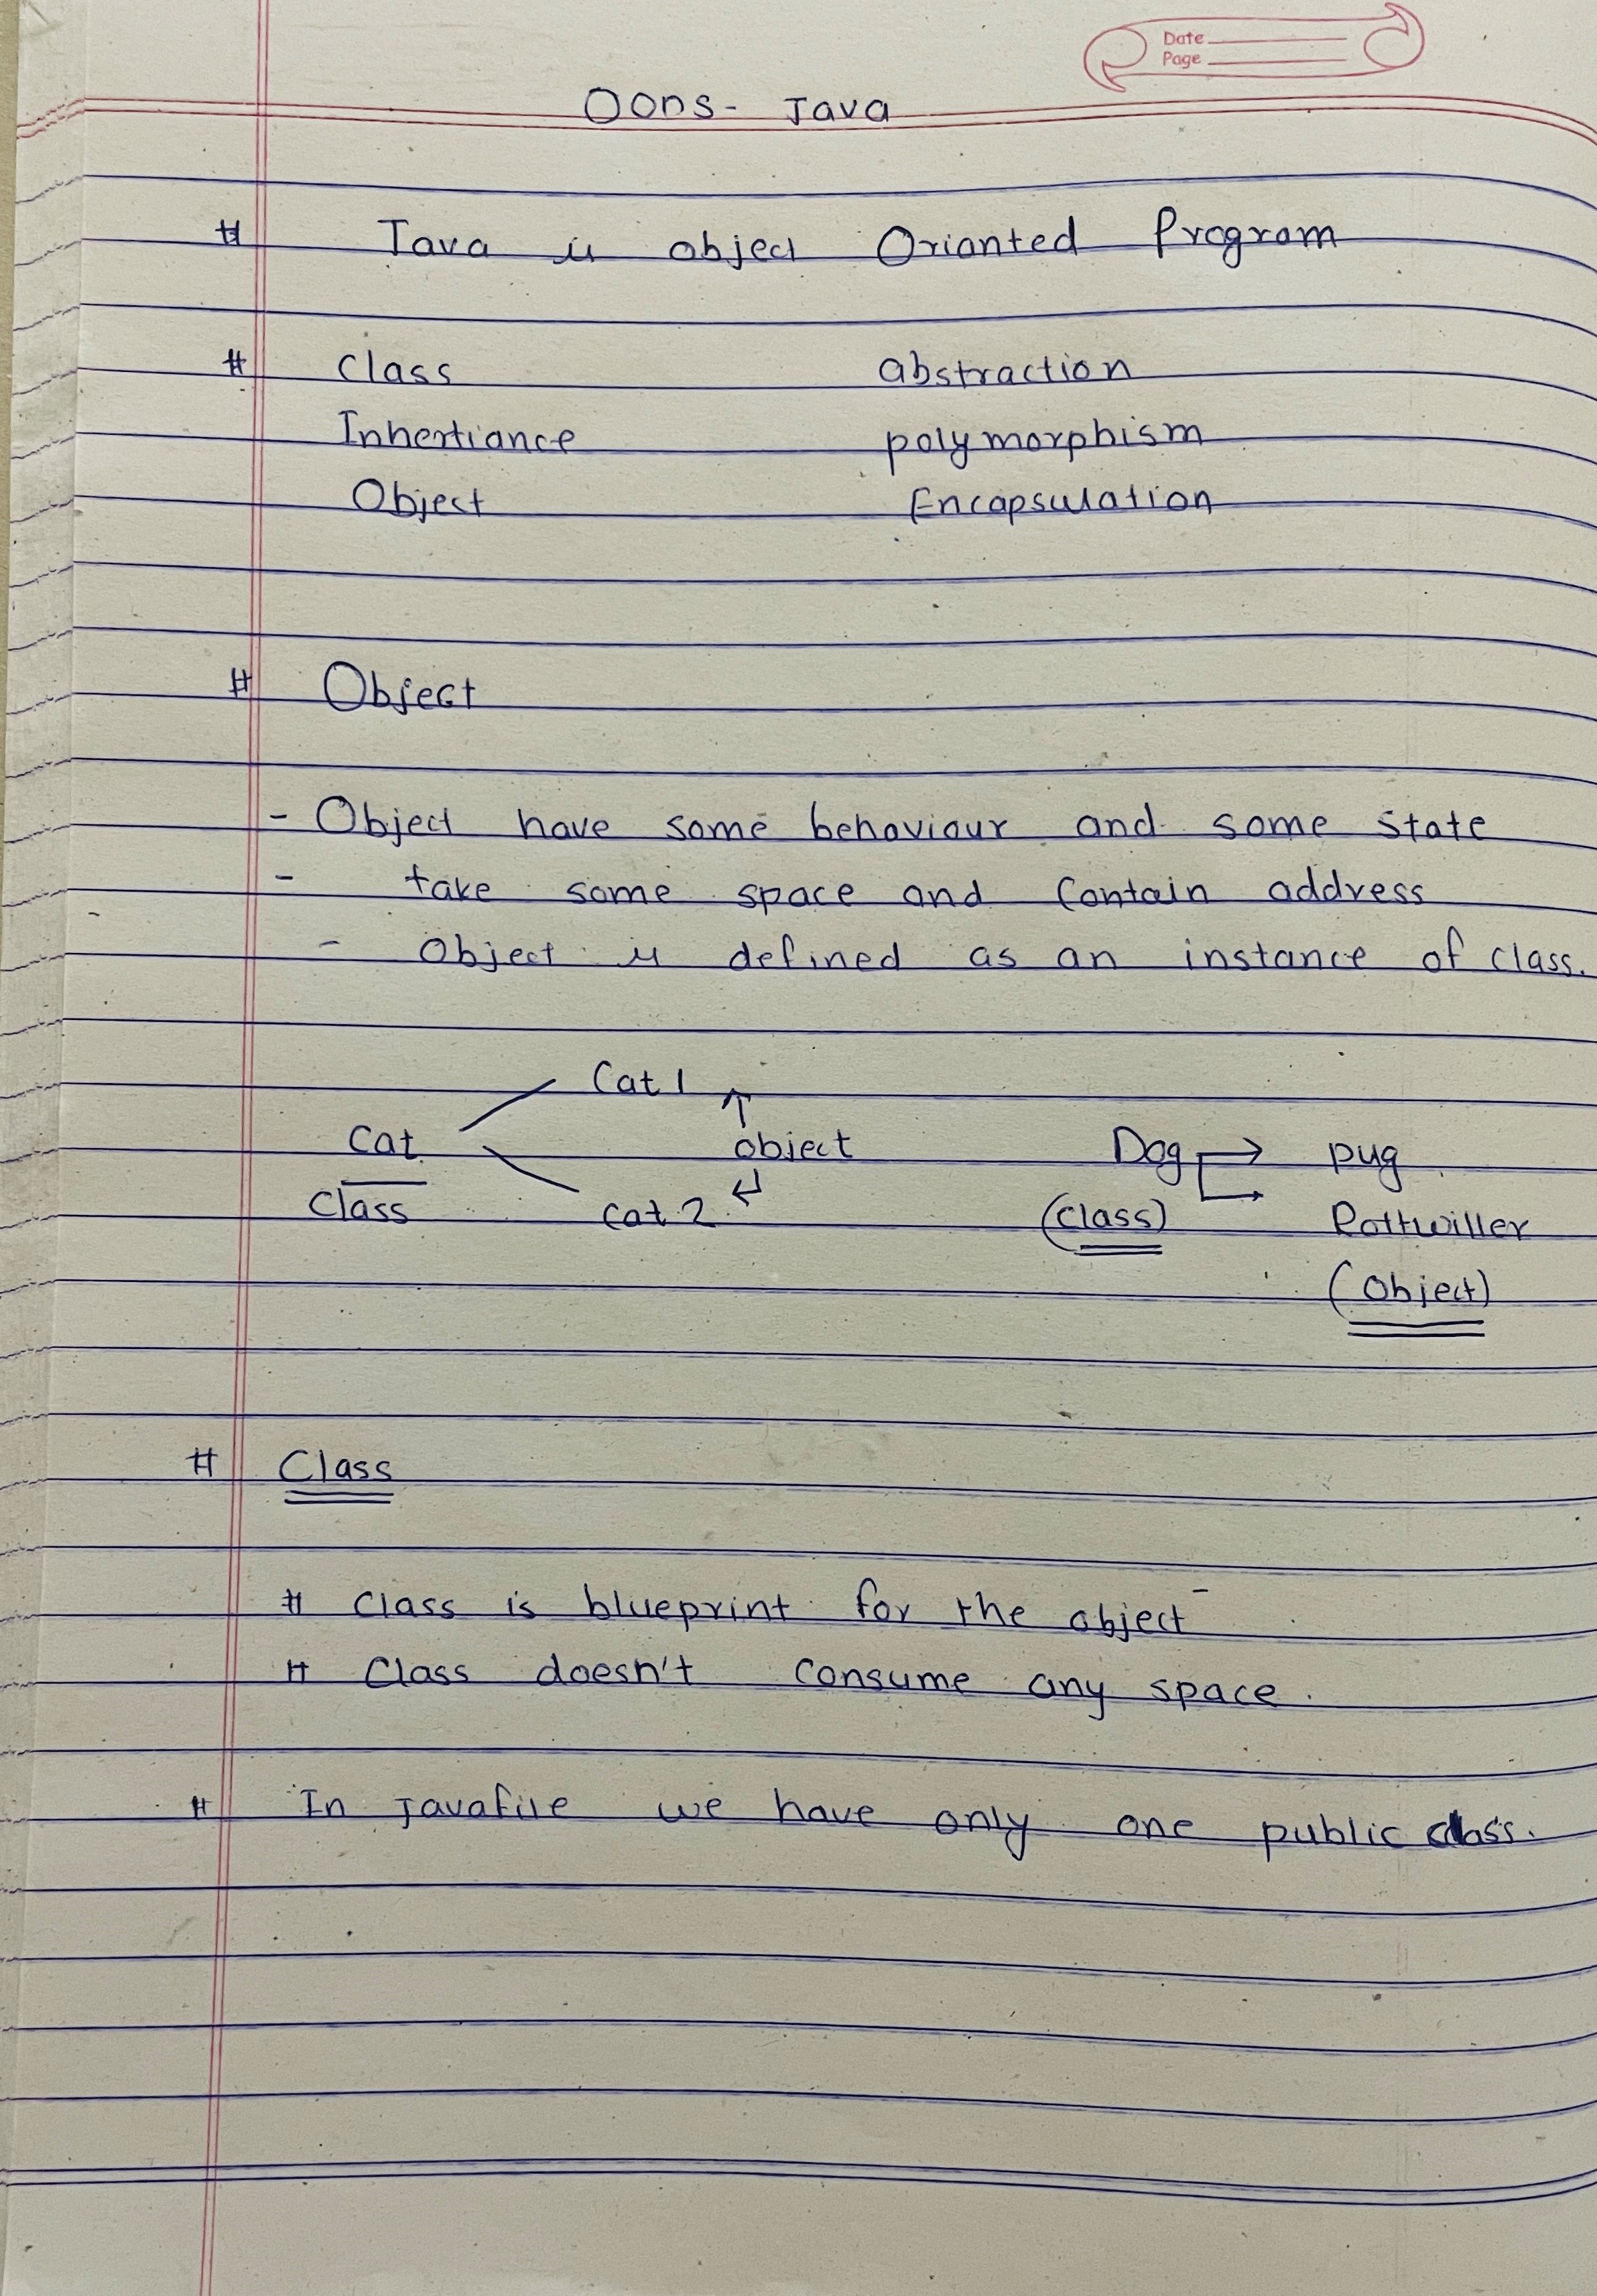 Date
Page
OOPS - Java
# Java is object Orianted Program
# Class abstraction
Inhertiance polymorphism
Object Encapsulation
# Object
- Object have some behaviour and some state
- take some space and contain address
- Object is defined as an instance of class.
Cat 1
Cat object Dog pug
Class Cat 2 (class) Rottwiller
(Object)
# Class
# Class is blueprint for the object
# Class doesn't consume any space.
# In Javafile we have only one public class.